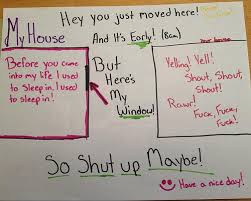 Hey you just moved here!
And It's Early! (8am)
My House
Your house
Before you came
into my life I used
to sleep in, I used
to sleep in!
But
Here's
My
Window!
Yelling! Yell!
Shout, Shout,
Shout!
Rawr!
Fuck, Fuck,
Fuck!
So Shut up Maybe!
Have a nice day!